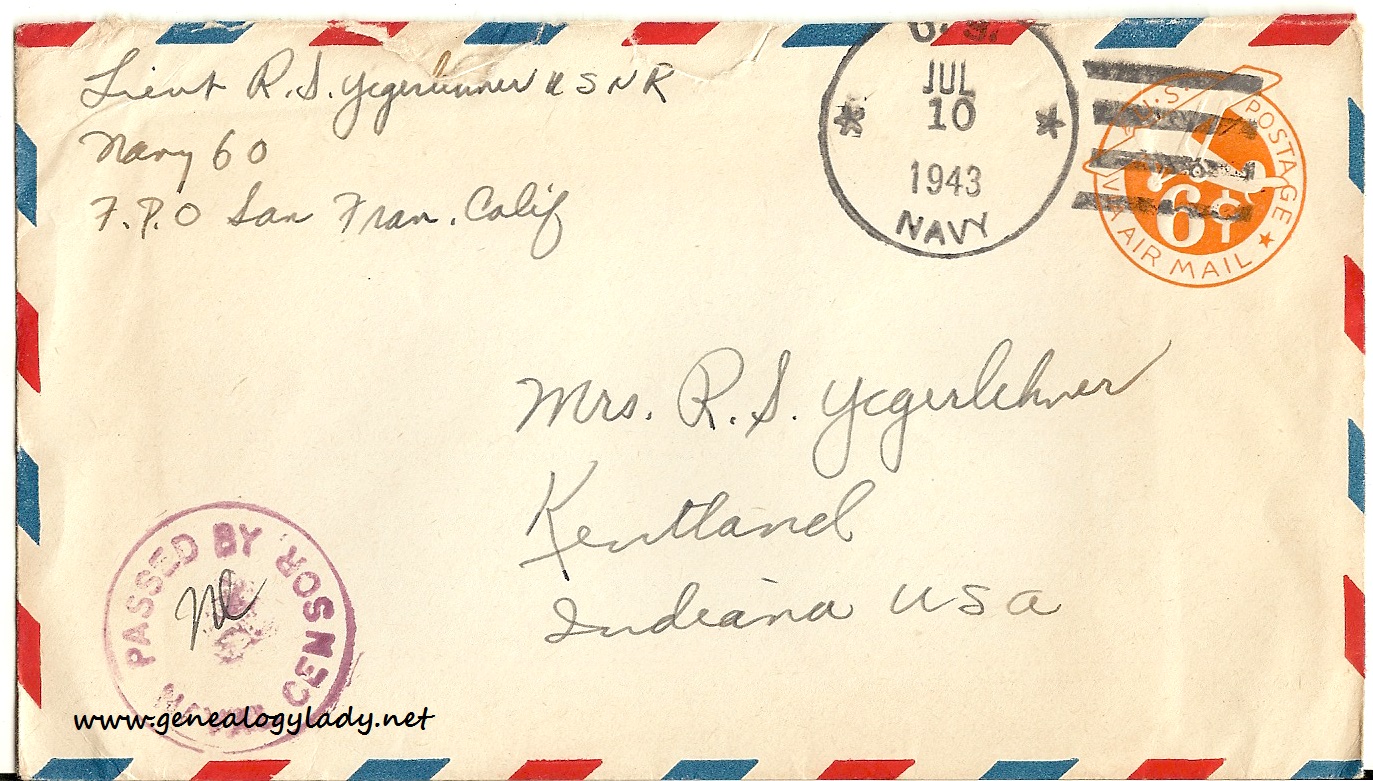 Lieut R. S. Yegerlehner U S N R
Navy 60
F.P.O San Fran. Calif
U.S.
JUL
10
1943
NAVY
U.S. POSTAGE
6¢
VIA AIR MAIL
Mrs. R. S. Yegerlehner
Kentland
Indiana USA
PASSED BY
NAVAL CENSOR
www.genealogylady.net